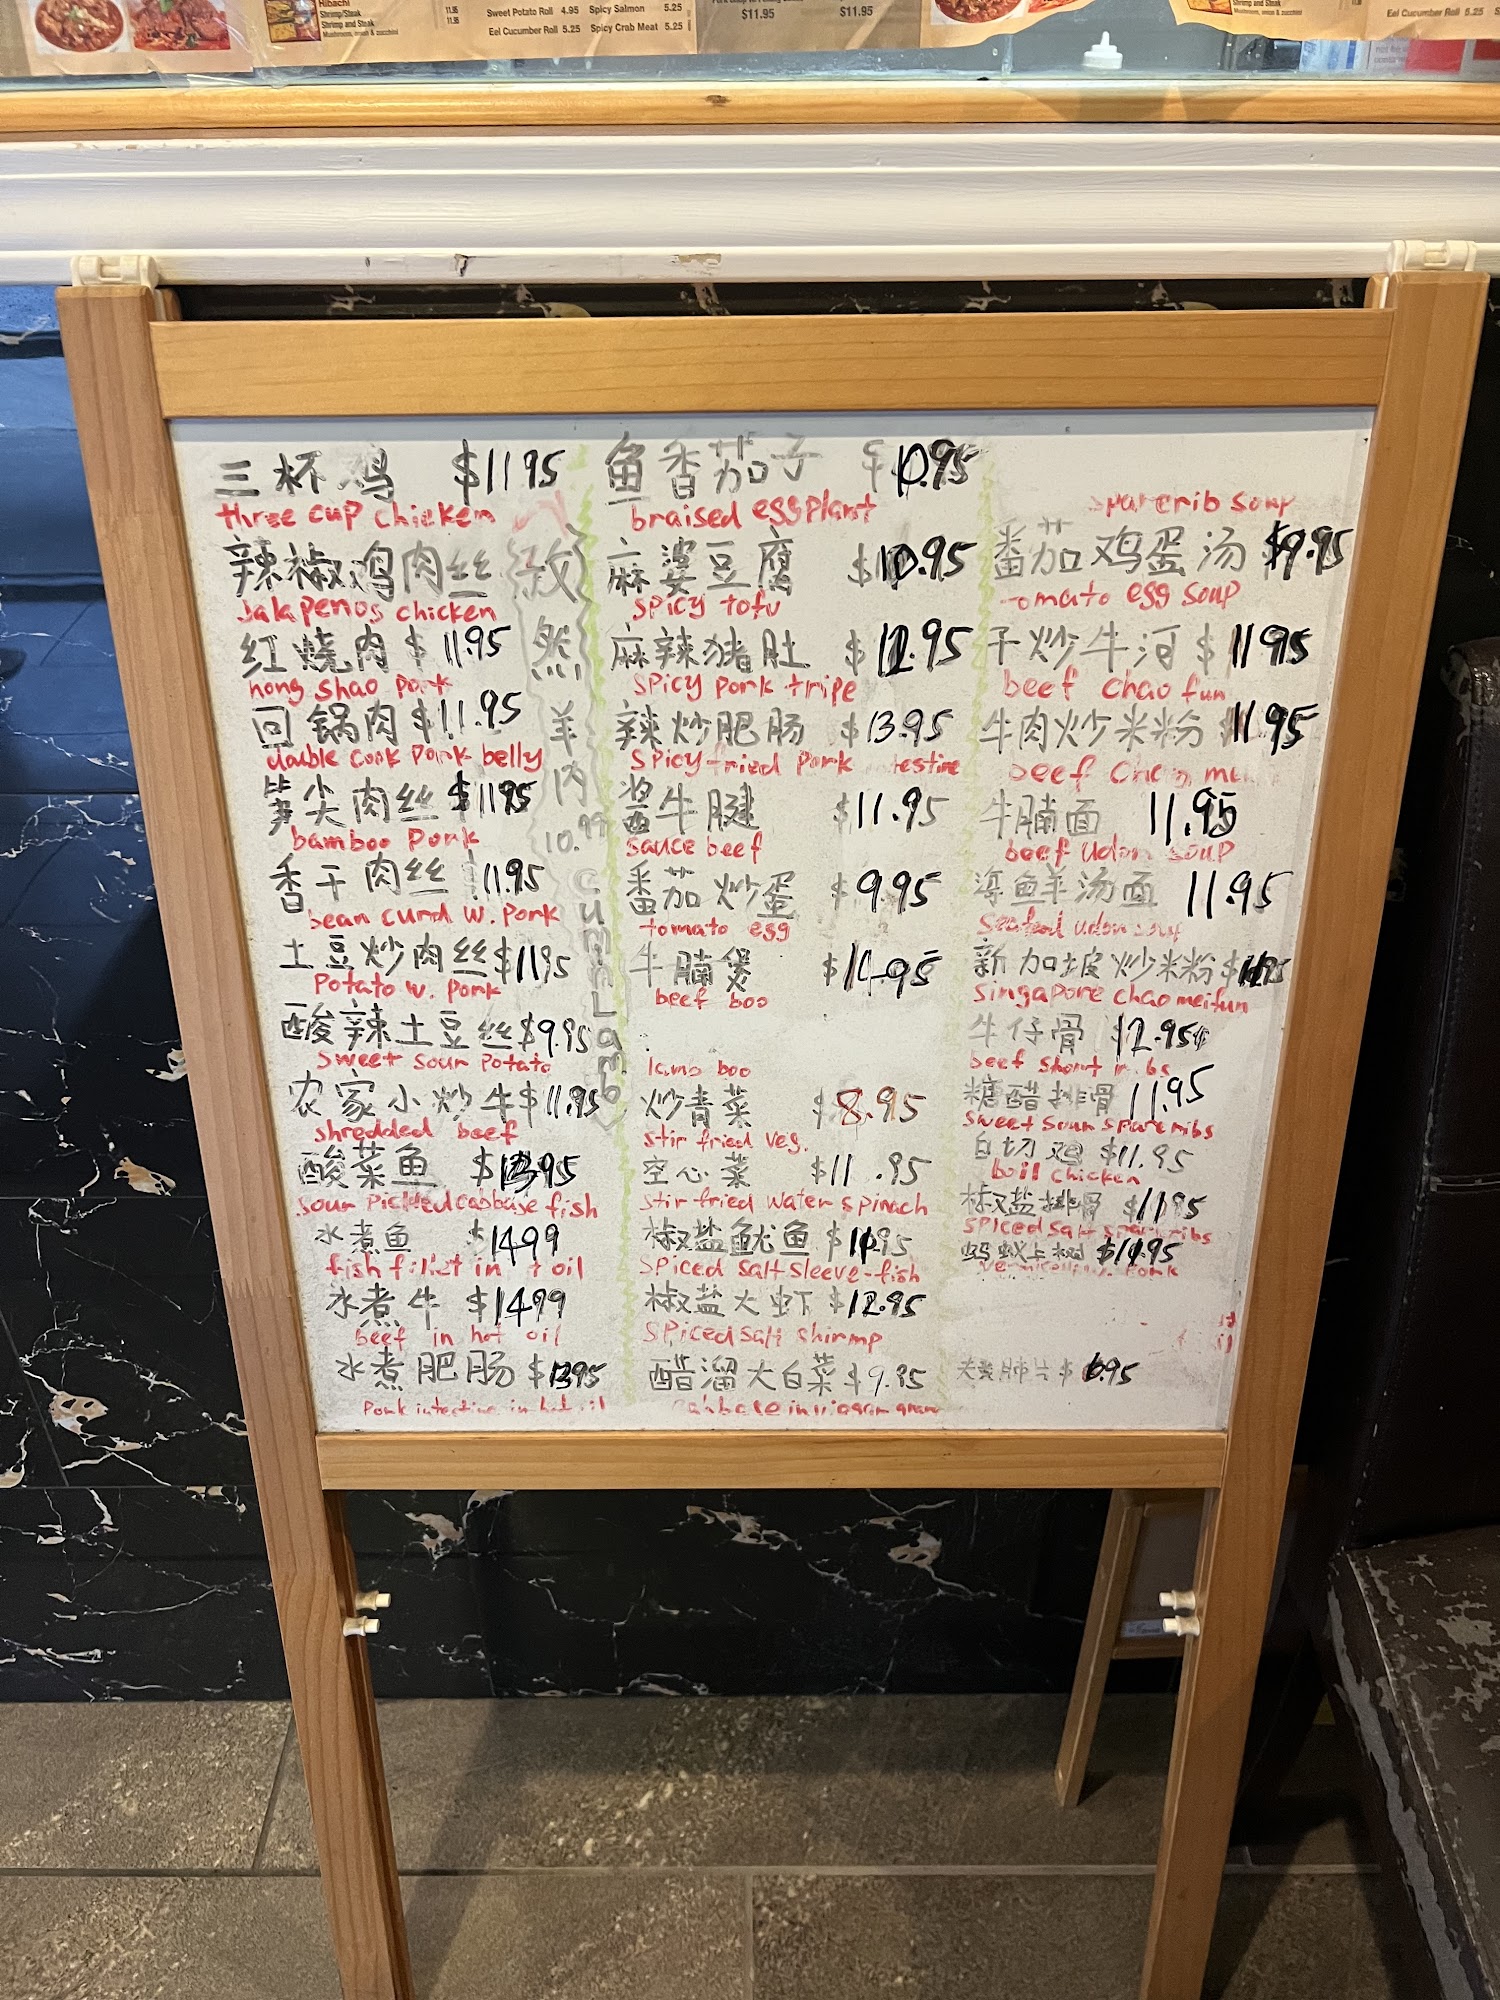 Hibachi
Shrimp/Steak 11.95
Shrimp and Steak 11.95
Mushroom, onion & zucchini
Sweet Potato Roll 4.95 Spicy Salmon 5.25
Eel Cucumber Roll 5.25 Spicy Crab Meat 5.25
$11.95 $11.95
Shrimp and Steak
Mushroom, onion & zucchini
Eel Cucumber Roll 5.25
三杯鸡 $11.95
three cup chicken
辣椒鸡肉丝
Jalapenos chicken
红烧肉 $11.95
hong shao pork
回锅肉 $11.95
double cook pork belly
笋尖肉丝 $11.95
bamboo pork
香干肉丝 11.95
bean curd w. pork
土豆炒肉丝 $11.95
Potato w. pork
酸辣土豆丝 $9.95
sweet sour potato
农家小炒牛 $11.95
shredded beef
酸菜鱼 $13.95
sour pickled cabbage fish
水煮鱼 $14.99
fish fillet in oil
水煮牛 $14.99
beef in hot oil
水煮肥肠 $13.95
Pork intestine in hot oil
孜然羊肉
10.99
cumin Lamb
鱼香茄子 10.95
braised eggplant
麻婆豆腐 $10.95
spicy tofu
麻辣猪肚 $12.95
spicy pork tripe
辣炒肥肠 $13.95
spicy fried pork testine
酱牛腱 $11.95
sauce beef
番茄炒蛋 $9.95
tomato egg
牛腩煲 $14.95
beef boo
lamb boo
炒青菜 $8.95
stir fried veg.
空心菜 $11.95
stir fried water spinach
椒盐鱿鱼 $11.95
spiced salt sleeve-fish
椒盐大虾 $12.95
spiced salt shirmp
醋溜大白菜 $9.95
sparerib soup
番茄鸡蛋汤 $9.95
tomato egg soup
干炒牛河 $11.95
beef chao fun
牛肉炒米粉 11.95
beef
牛腩面 11.95
beef udon soup
海鱼羊汤面 11.95
Seafood udon soup
新加坡炒米粉 $11.95
singapore chaomeifun
牛仔骨 $12.95
beef short ribs
糖醋排骨 11.95
sweet sour spareribs
白切鸡 $11.95
boil chicken
椒盐排骨 $11.95
spiced salt spareribs
蚂蚁上树 $11.95
夫妻肺片 $6.95